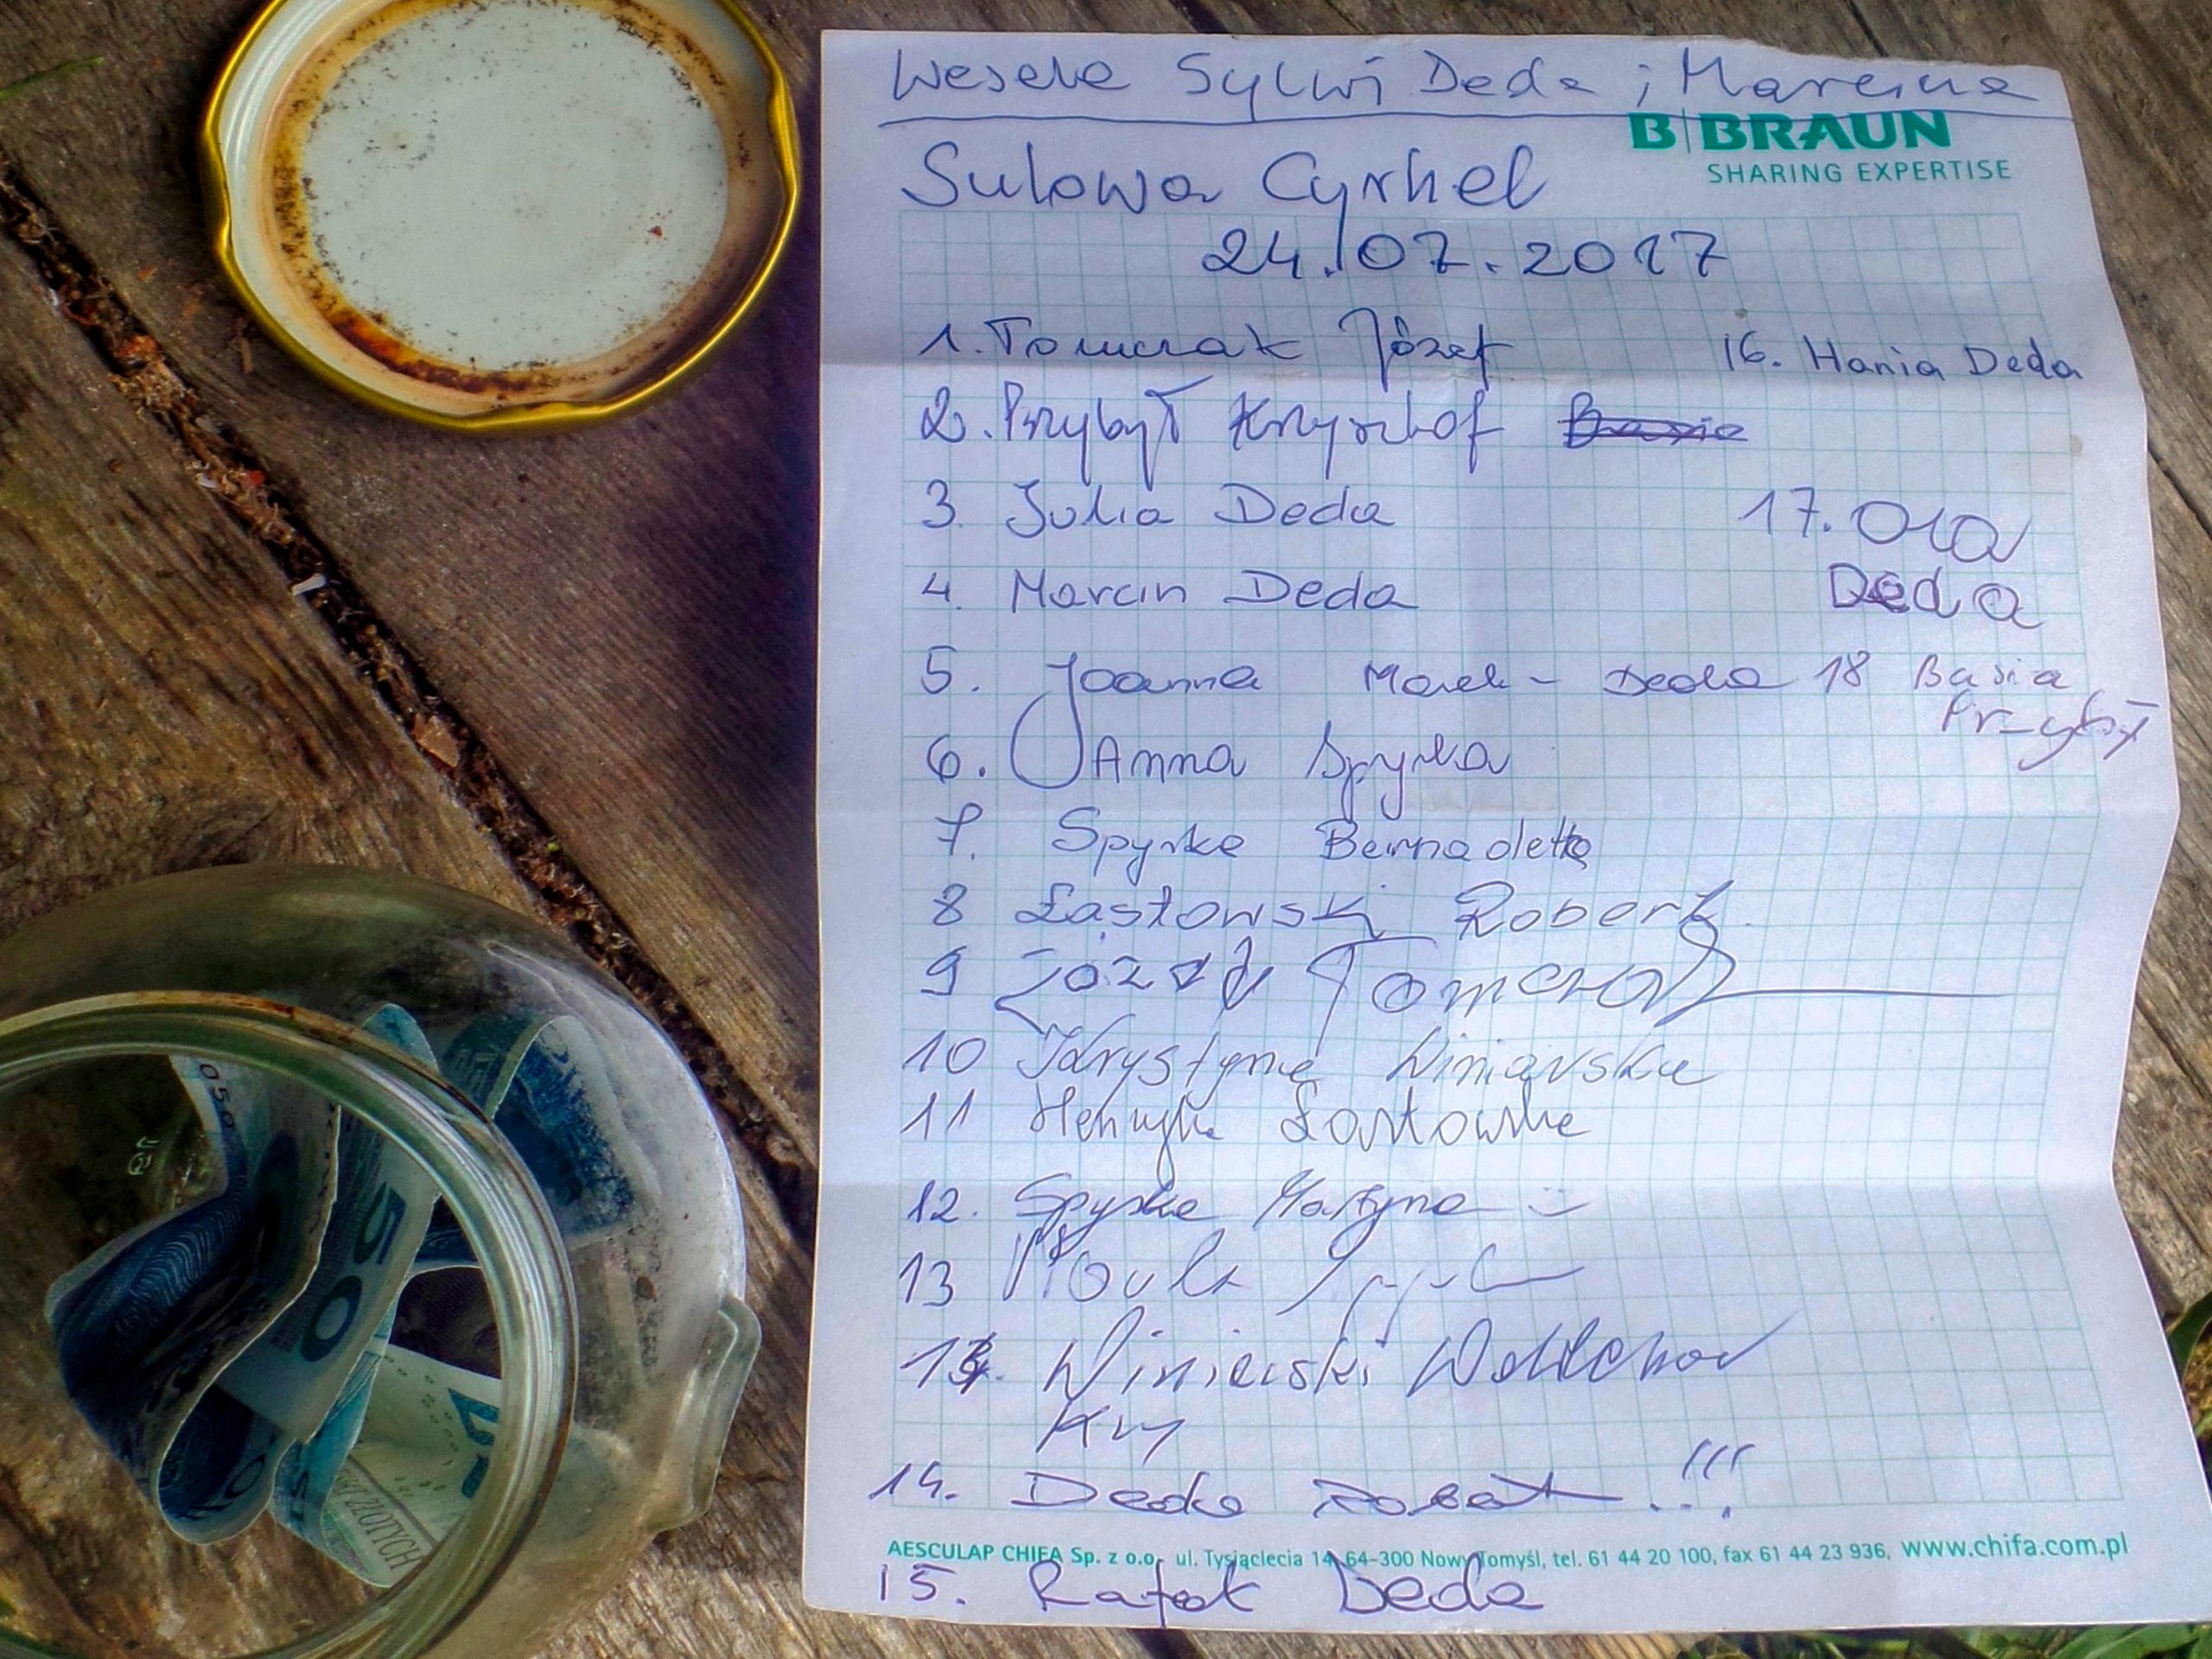 Wesele Sylwi Deda i Marcina
B|BRAUN
SHARING EXPERTISE
Sulowa Cyrhel
24.07.2017
1. Tomczak Józef
16. Hania Deda
2. Przybył Krzysztof Basia
3. Julia Deda
17. Ola
Deda
4. Marcin Deda
5. Joanna Marek - Deda
18 Basia
Przybył
6. Anna Spyrka
7. Spyrka Bernadetta
8 Łastowski Robert
9 Józef Tomczak
10 Krystyna Winiarska
11 Henryka Łastowska
12. Spyrka Martyna
13
13. Winiarski
14. Deda Robert...!!!
AESCULAP CHIFA Sp. z o.o. ul. Tysiąclecia 14, 64-300 Nowy Tomyśl, tel. 61 44 20 100, fax 61 44 23 936, www.chifa.com.pl
15. Rafał Deda
050
50
50
ZŁOTYCH